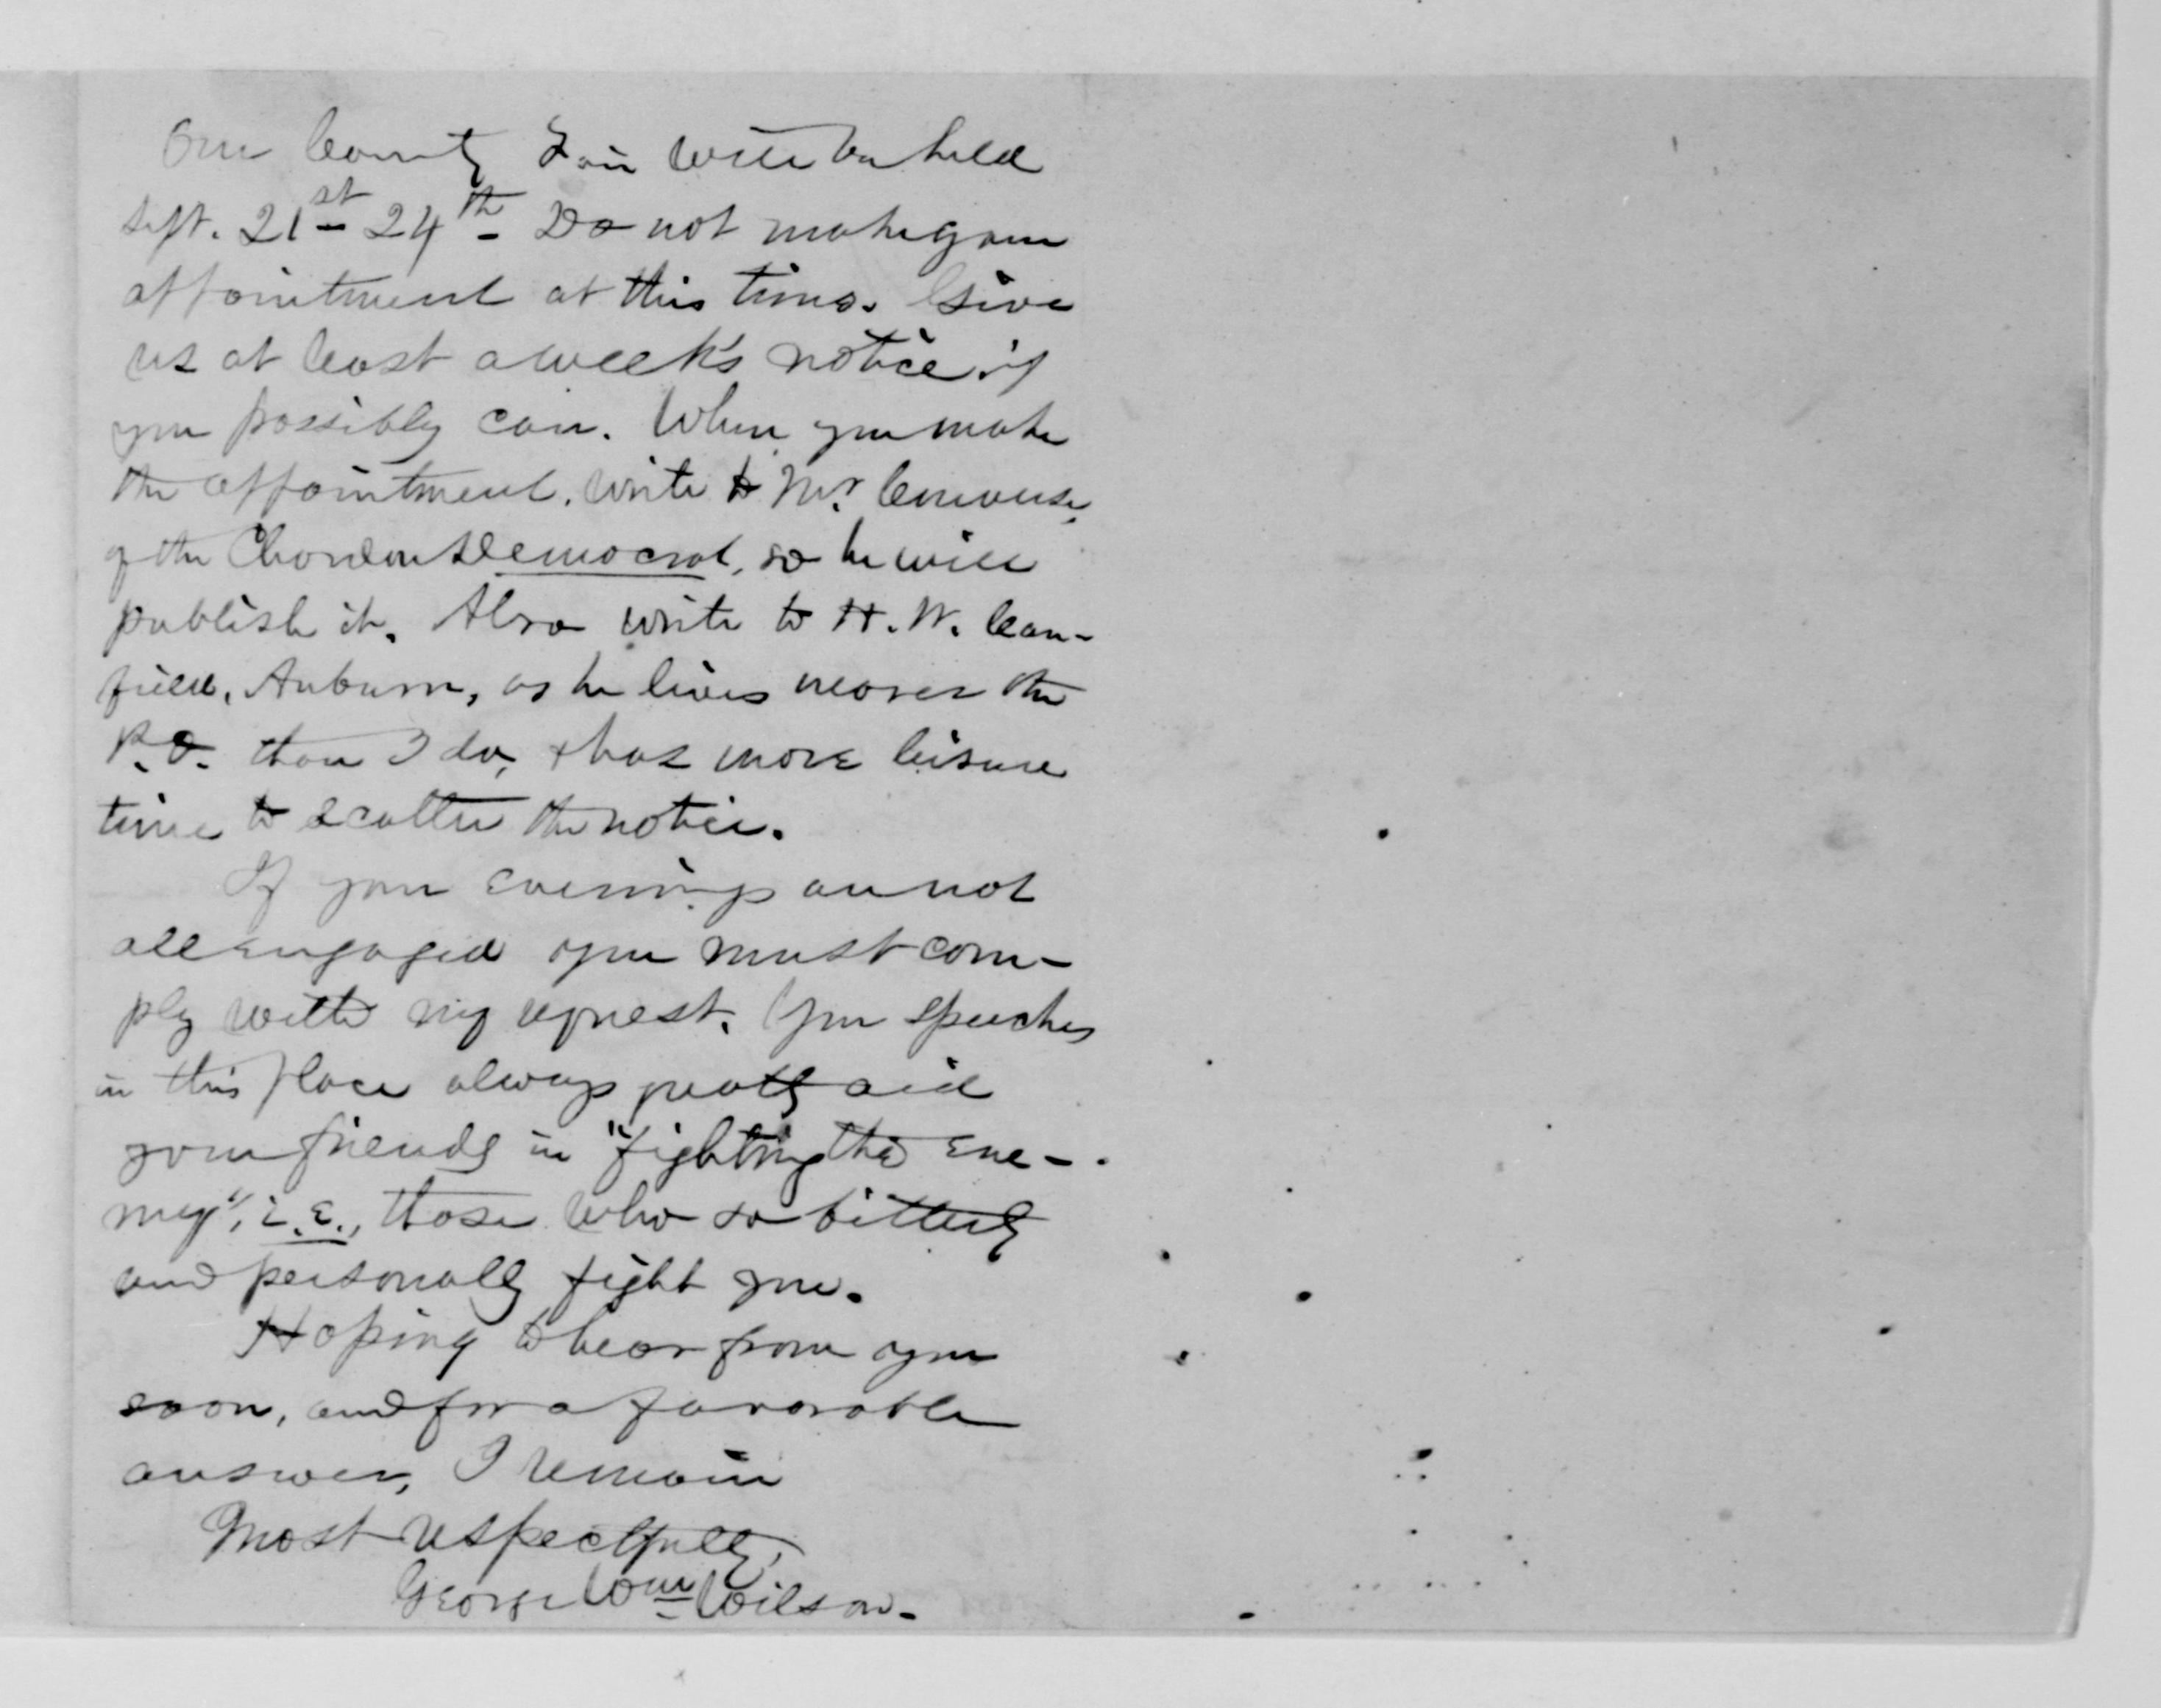 Our County Fair will be held
Sept. 21st - 24th - Do not make your
appointment at this time. Give
us at least a week's notice if
you possibly can. When you make
the appointment, write to Mr. Converse,
of the Chardon Democrat, so he will
publish it. Also write to H. W. Can-
field, Auburn, as he lives nearer the
P.O. than I do, & has more leisure
time to scatter the notice.
If your evenings are not
all engaged you must com-
ply with my request. Your speeches
in this place always greatly aid
your friends in "fighting the ene-
my", i.e., those who so bitterly
and personally fight you.
Hoping to hear from you
soon, and for a favorable
answer, I remain
Most respectfully,
George Wm Wilson.